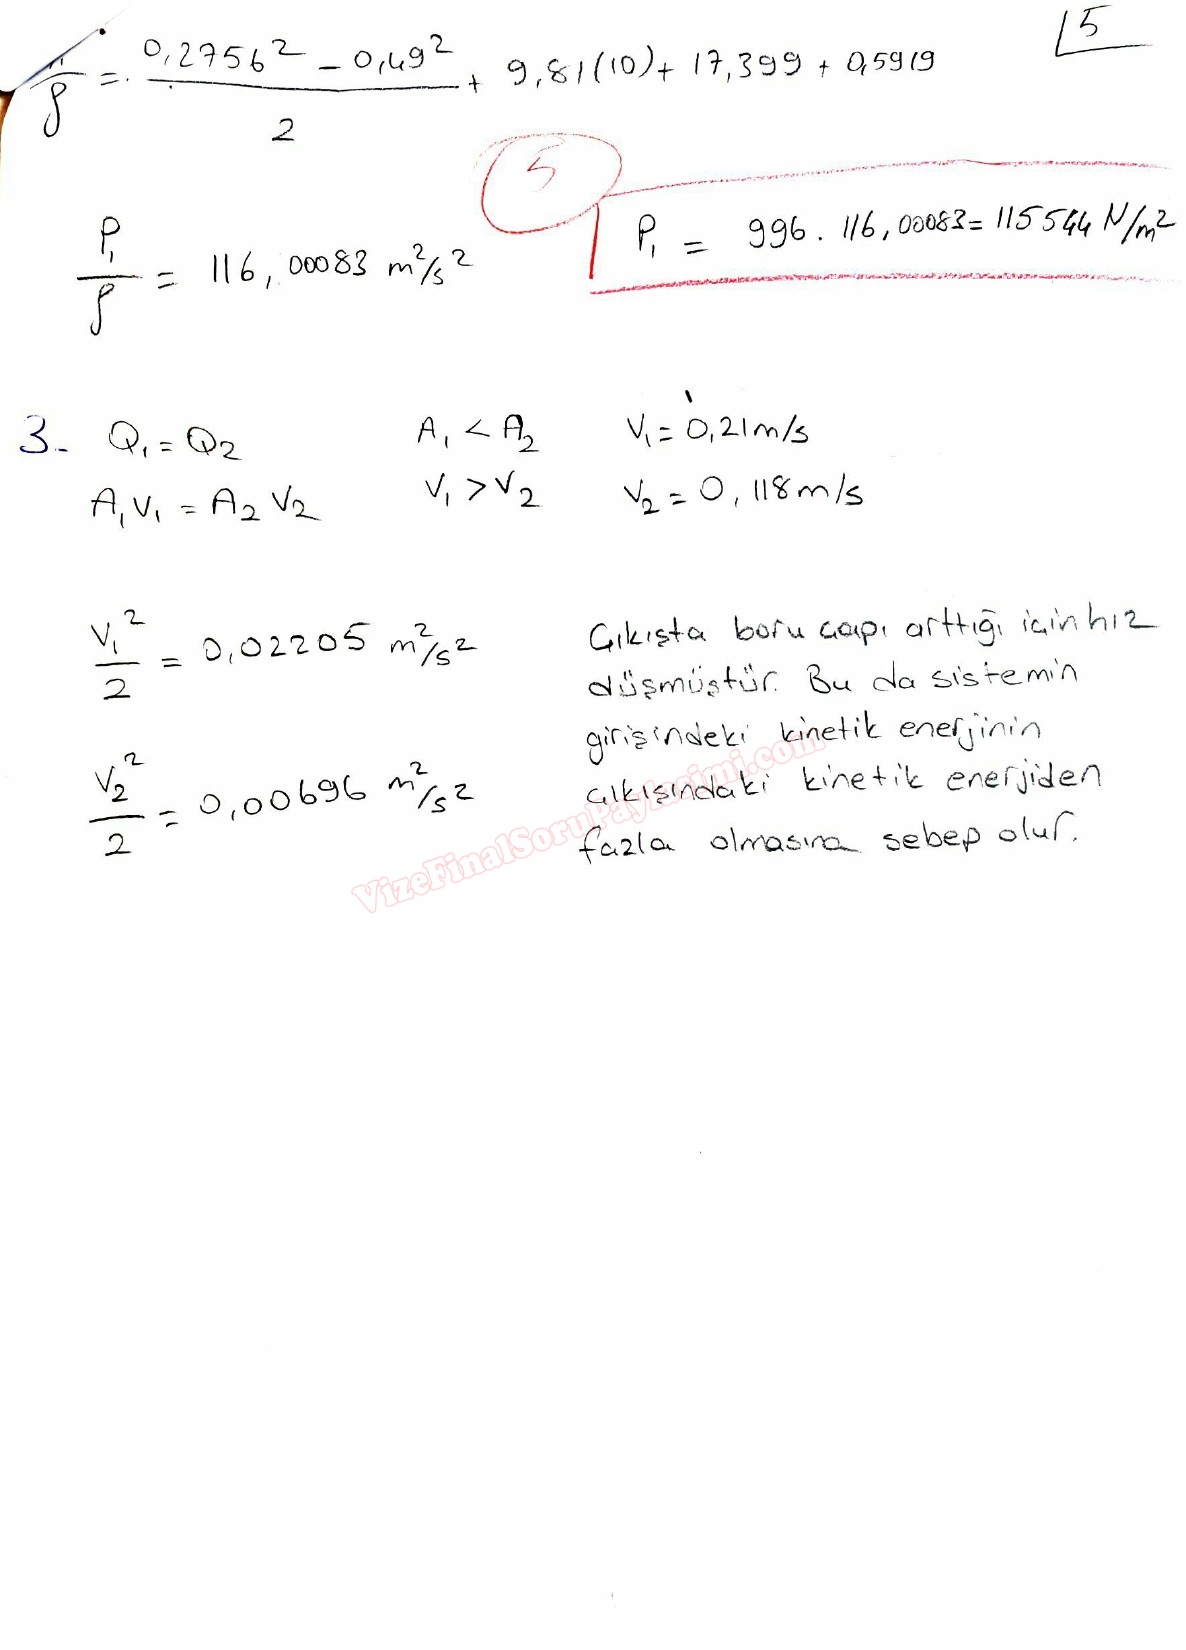 5
P₁/ρ = (0,2756² - 0,49²)/2 + 9,81(10) + 17,399 + 0,5919
5
P₁/ρ = 116,00083 m²/s²
P₁ = 996 . 116,00083 = 115544 N/m²
3. Q₁ = Q₂ A₁ < A₂ V₁ = 0,21 m/s
A₁V₁ = A₂V₂ V₁ > V₂ V₂ = 0,118 m/s
V₁²/2 = 0,02205 m²/s²
V₂²/2 = 0,00696 m²/s²
Çıkışta boru çapı arttığı için hız
düşmüştür. Bu da sistemin
girişindeki kinetik enerjinin
çıkışındaki kinetik enerjiden
fazla olmasına sebep olur.
VizeFinalSoruPaylasimi.com